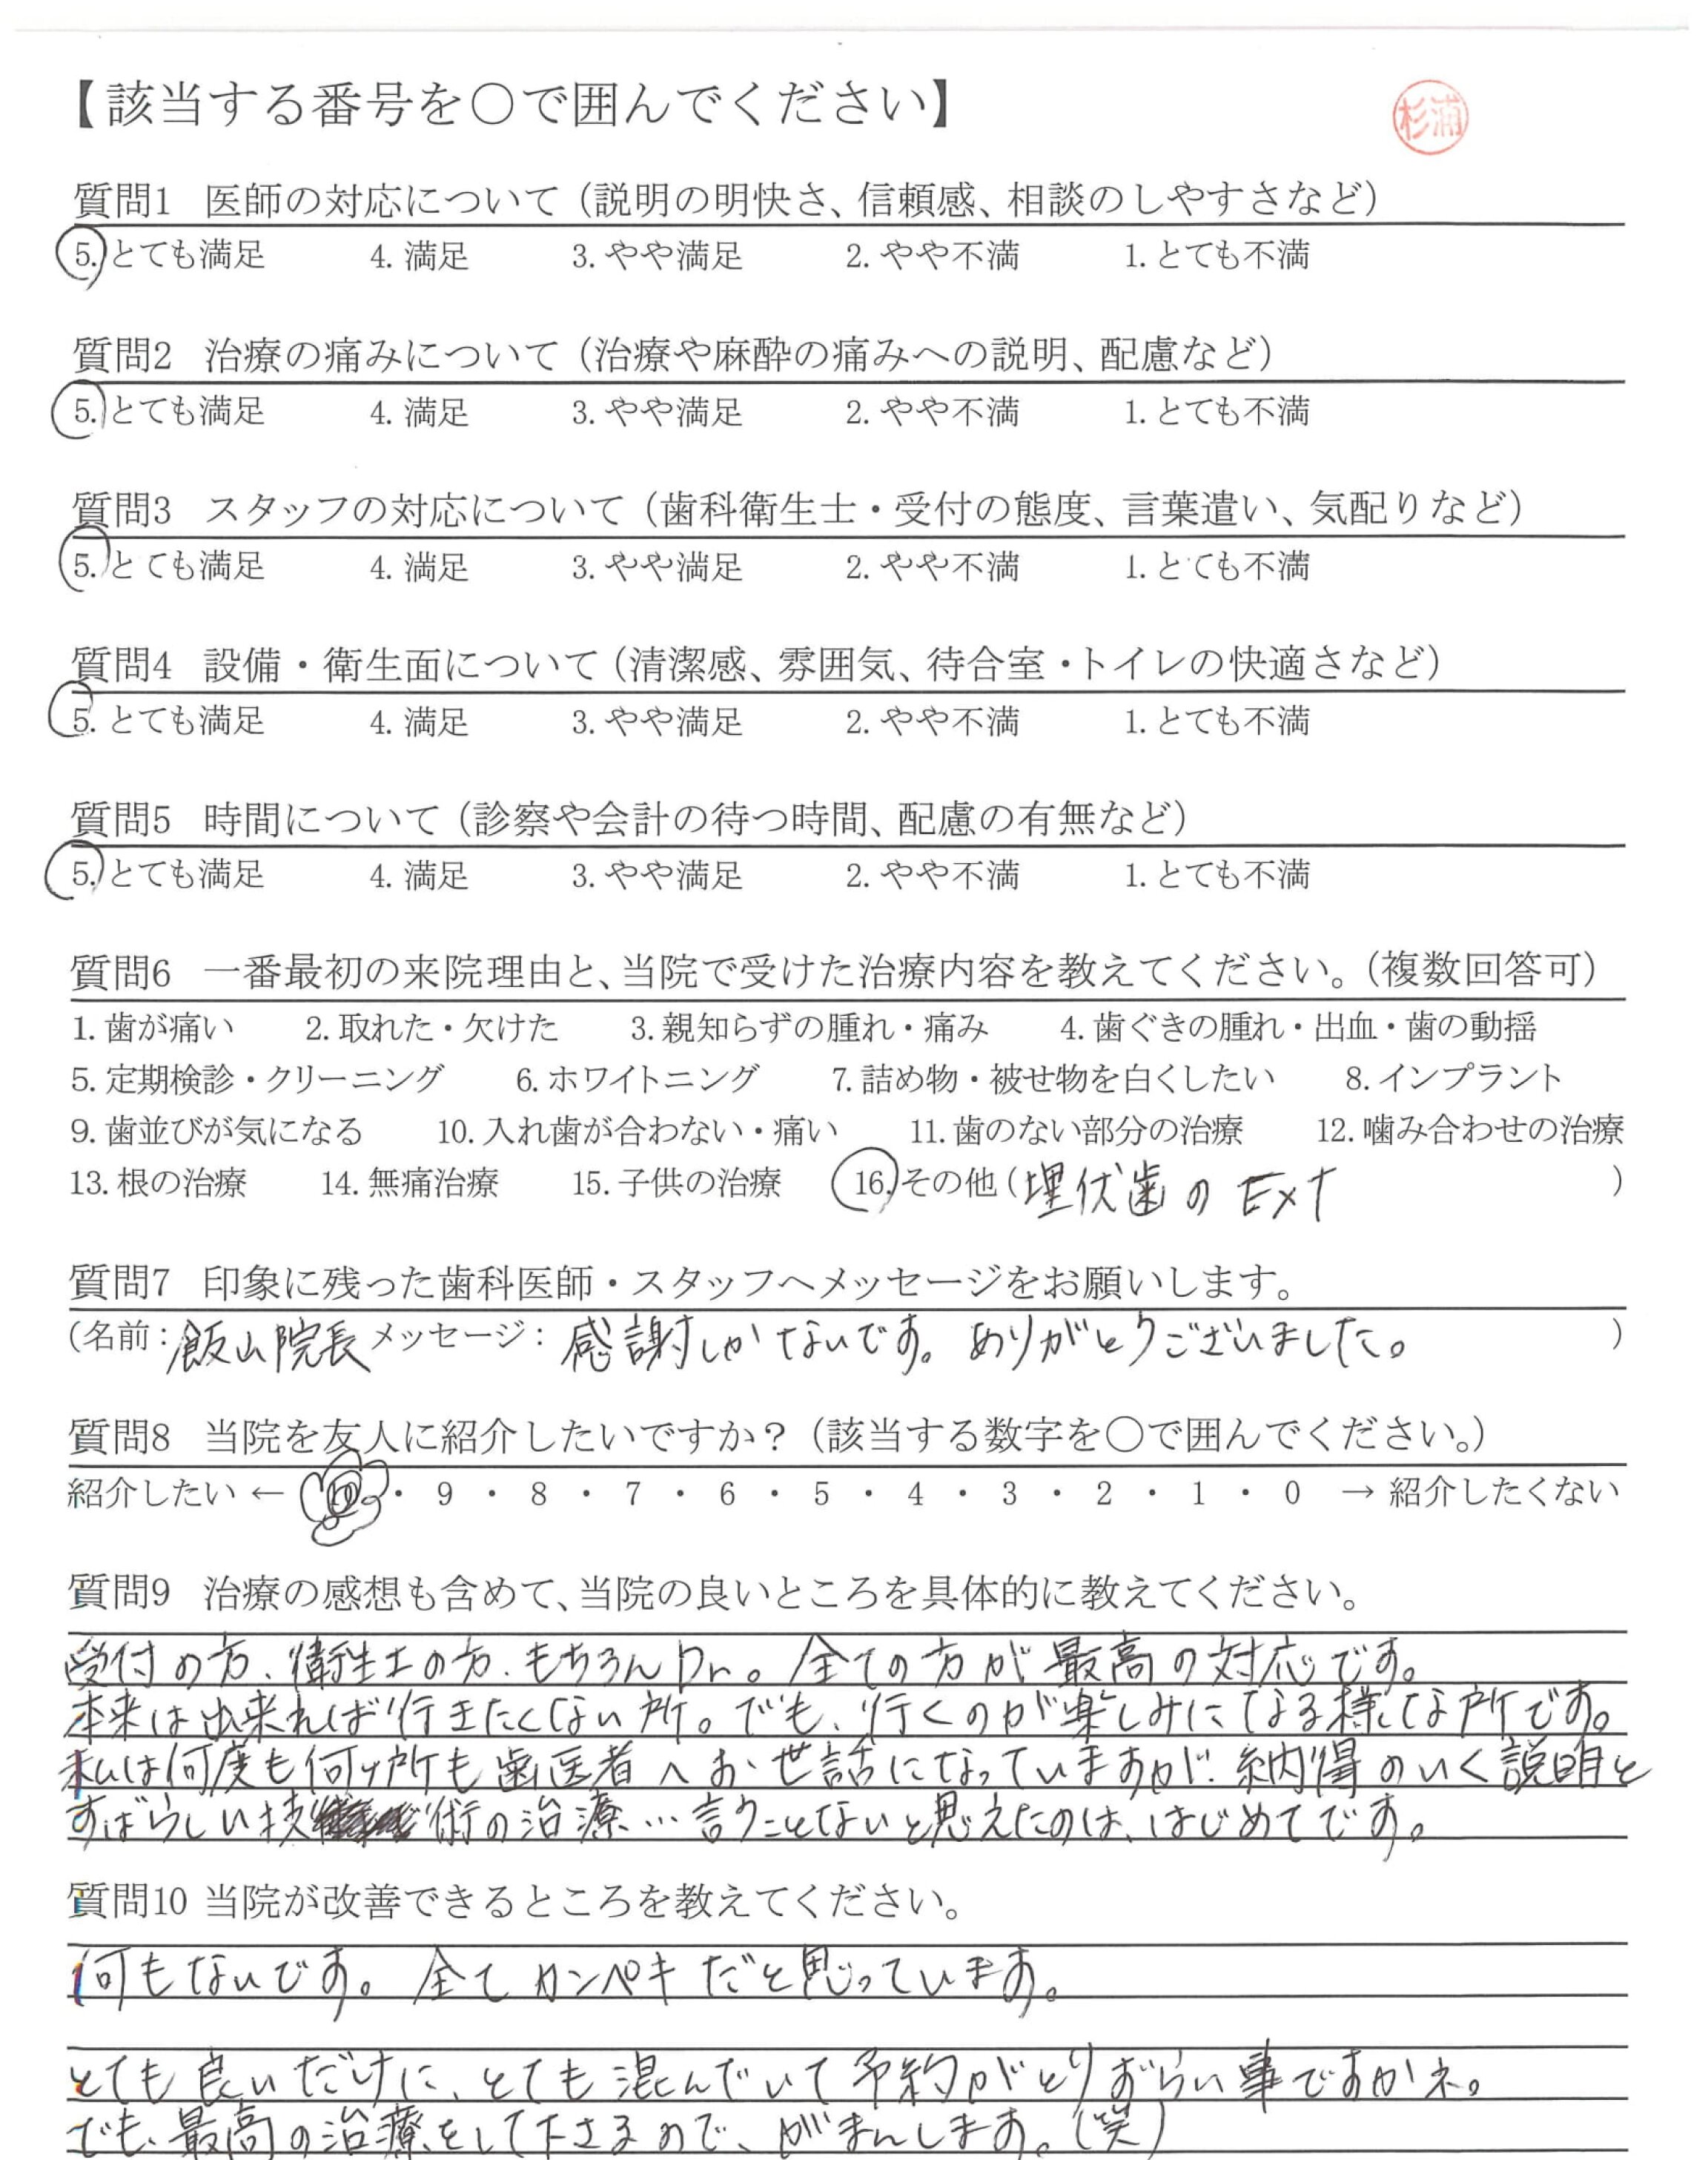 【該当する番号を○で囲んでください】
杉浦
質問1 医師の対応について（説明の明快さ、信頼感、相談のしやすさなど）
5. とても満足 4. 満足 3. やや満足 2. やや不満 1. とても不満
質問2 治療の痛みについて（治療や麻酔の痛みへの説明、配慮など）
5. とても満足 4. 満足 3. やや満足 2. やや不満 1. とても不満
質問3 スタッフの対応について（歯科衛生士・受付の態度、言葉遣い、気配りなど）
5. とても満足 4. 満足 3. やや満足 2. やや不満 1. とても不満
質問4 設備・衛生面について（清潔感、雰囲気、待合室・トイレの快適さなど）
5. とても満足 4. 満足 3. やや満足 2. やや不満 1. とても不満
質問5 時間について（診察や会計の待つ時間、配慮の有無など）
5. とても満足 4. 満足 3. やや満足 2. やや不満 1. とても不満
質問6 一番最初の来院理由と、当院で受けた治療内容を教えてください。（複数回答可）
1. 歯が痛い 2. 取れた・欠けた 3. 親知らずの腫れ・痛み 4. 歯ぐきの腫れ・出血・歯の動揺
5. 定期検診・クリーニング 6. ホワイトニング 7. 詰め物・被せ物を白くしたい 8. インプラント
9. 歯並びが気になる 10. 入れ歯が合わない・痛い 11. 歯のない部分の治療 12. 噛み合わせの治療
13. 根の治療 14. 無痛治療 15. 子供の治療 16. その他（埋伏歯の EXT ）
質問7 印象に残った歯科医師・スタッフへメッセージをお願いします。
（名前：飯山院長 メッセージ：感謝しかないです。ありがとうございました。 ）
質問8 当院を友人に紹介したいですか？（該当する数字を○で囲んでください。）
紹介したい ← 10 ・ 9 ・ 8 ・ 7 ・ 6 ・ 5 ・ 4 ・ 3 ・ 2 ・ 1 ・ 0 → 紹介したくない
質問9 治療の感想も含めて、当院の良いところを具体的に教えてください。
受付の方、衛生士の方、もちろんDr。全ての方が最高の対応です。
本来は出来れば行きたくない所。でも、行くのが楽しみになる様な所です。
私は何度も何ヶ所も歯医者へお世話になっていますが、納得のいく説明と
すばらしい技術の治療…言うことないと思えたのは、はじめてです。
質問10 当院が改善できるところを教えてください。
何もないです。全てカンペキだと思っています。
とても良いだけに、とても混んでいて予約がとりずらい事ですかネ。
でも、最高の治療をして下さるので、がまんします。（笑）